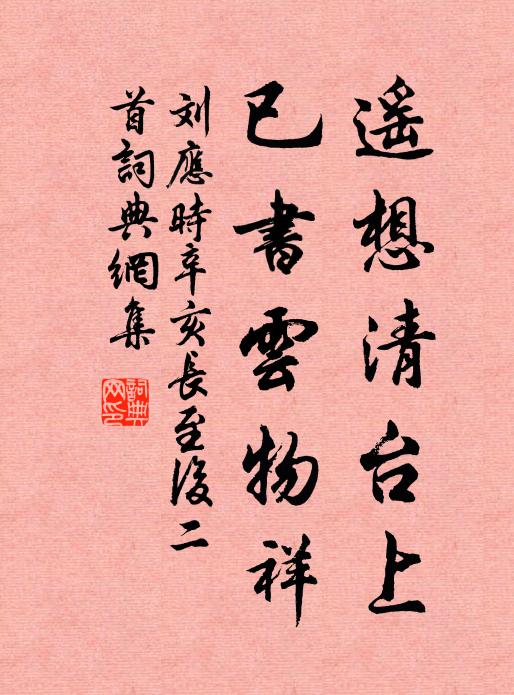 遥想清台上
已書雲物祥
刘應時辛亥長至後二
首詞典網集
詞典
网印